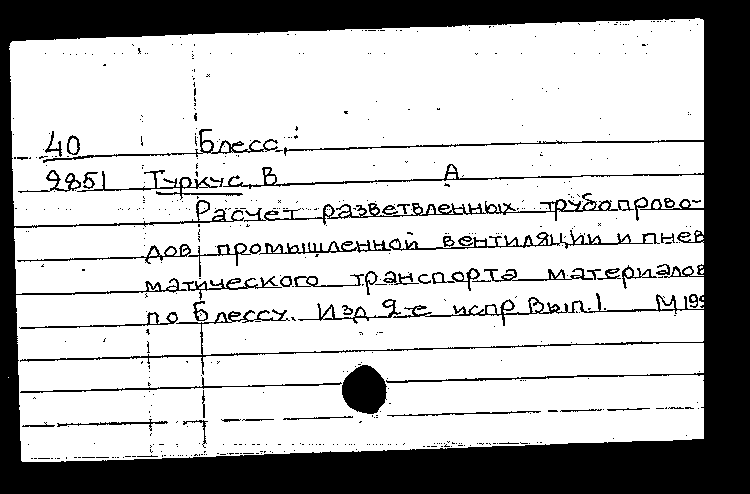 40 Блесс,
9851 Туркус, В А
Расчет разветвленных трубопрово-
дов промышленной вентиляции и пнев
матического транспорта материалов
по Блессу. Изд 2-е испр Вып. 1. М 199